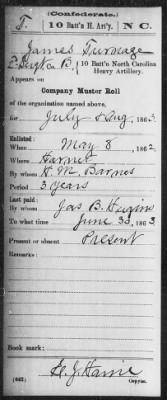 (Confederate.)
T. 10 Batt'n H. Art'y. N C.
James Turnage
Pvt, Capt. B, 10 Batt'n North Carolina
Heavy Artillery.
Appears on
Company Muster Roll
of the organization named above,
for July & Aug, 1863
Enlisted:
When May 8, 1862
Where Harnet
By whom H. M. Barnes
Period 3 Years
Last paid:
By whom Jas B. Hagins
To what time June 30, 1863
Present or absent Present
Remarks:
Book mark:
(642) Copyist.